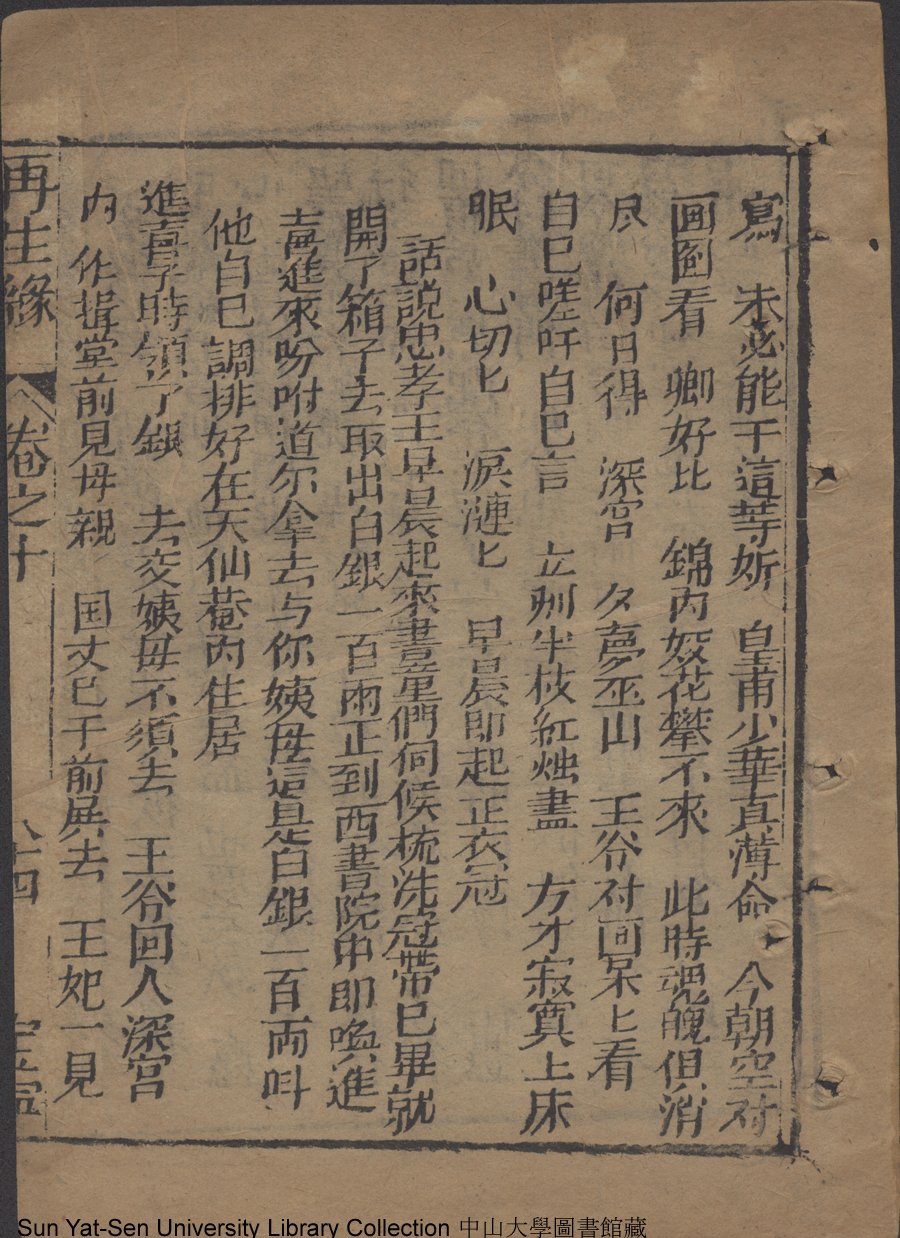 寫 未必能干這等妡 皇甫少華真薄命 今朝空对
画圖看 卿好比 錦內姣花攀不來 此時魂魄但消
尽 何日得 深宫 夕夢巫山 王爷对画呆匕看
自已嗟吁自已言 立剐半枝紅烛盡 方才寂寞上床
眠 心切匕 淚漣匕 早晨即起正衣冠
話說忠孝王早晨起來書童們伺候梳洗冠帶已畢就
開了箱子去取出白銀一百兩正到西書院中即喚進
喜進來吩咐道尔拿去与你姨母這是白銀一百兩叫
他自已調排好在天仙菴內住居
進喜子時領了銀 去交姨母不須去 王爷回人深宫
內 作揖堂前見母親 国丈已于前屏去 王妃一見
再生緣 卷之十 八十四
Sun Yat-Sen University Library Collection 中山大學圖書館藏